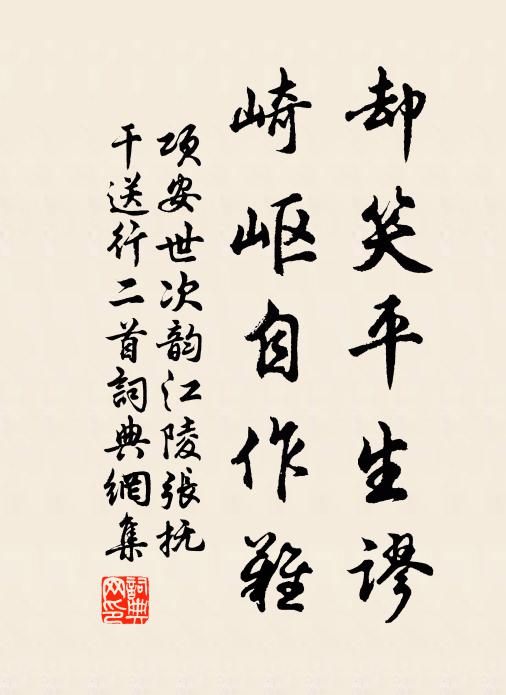 却笑平生謬
崎岖自作難
项安世次韵江陵張抚
干送行二首詞典網集
詞典网印